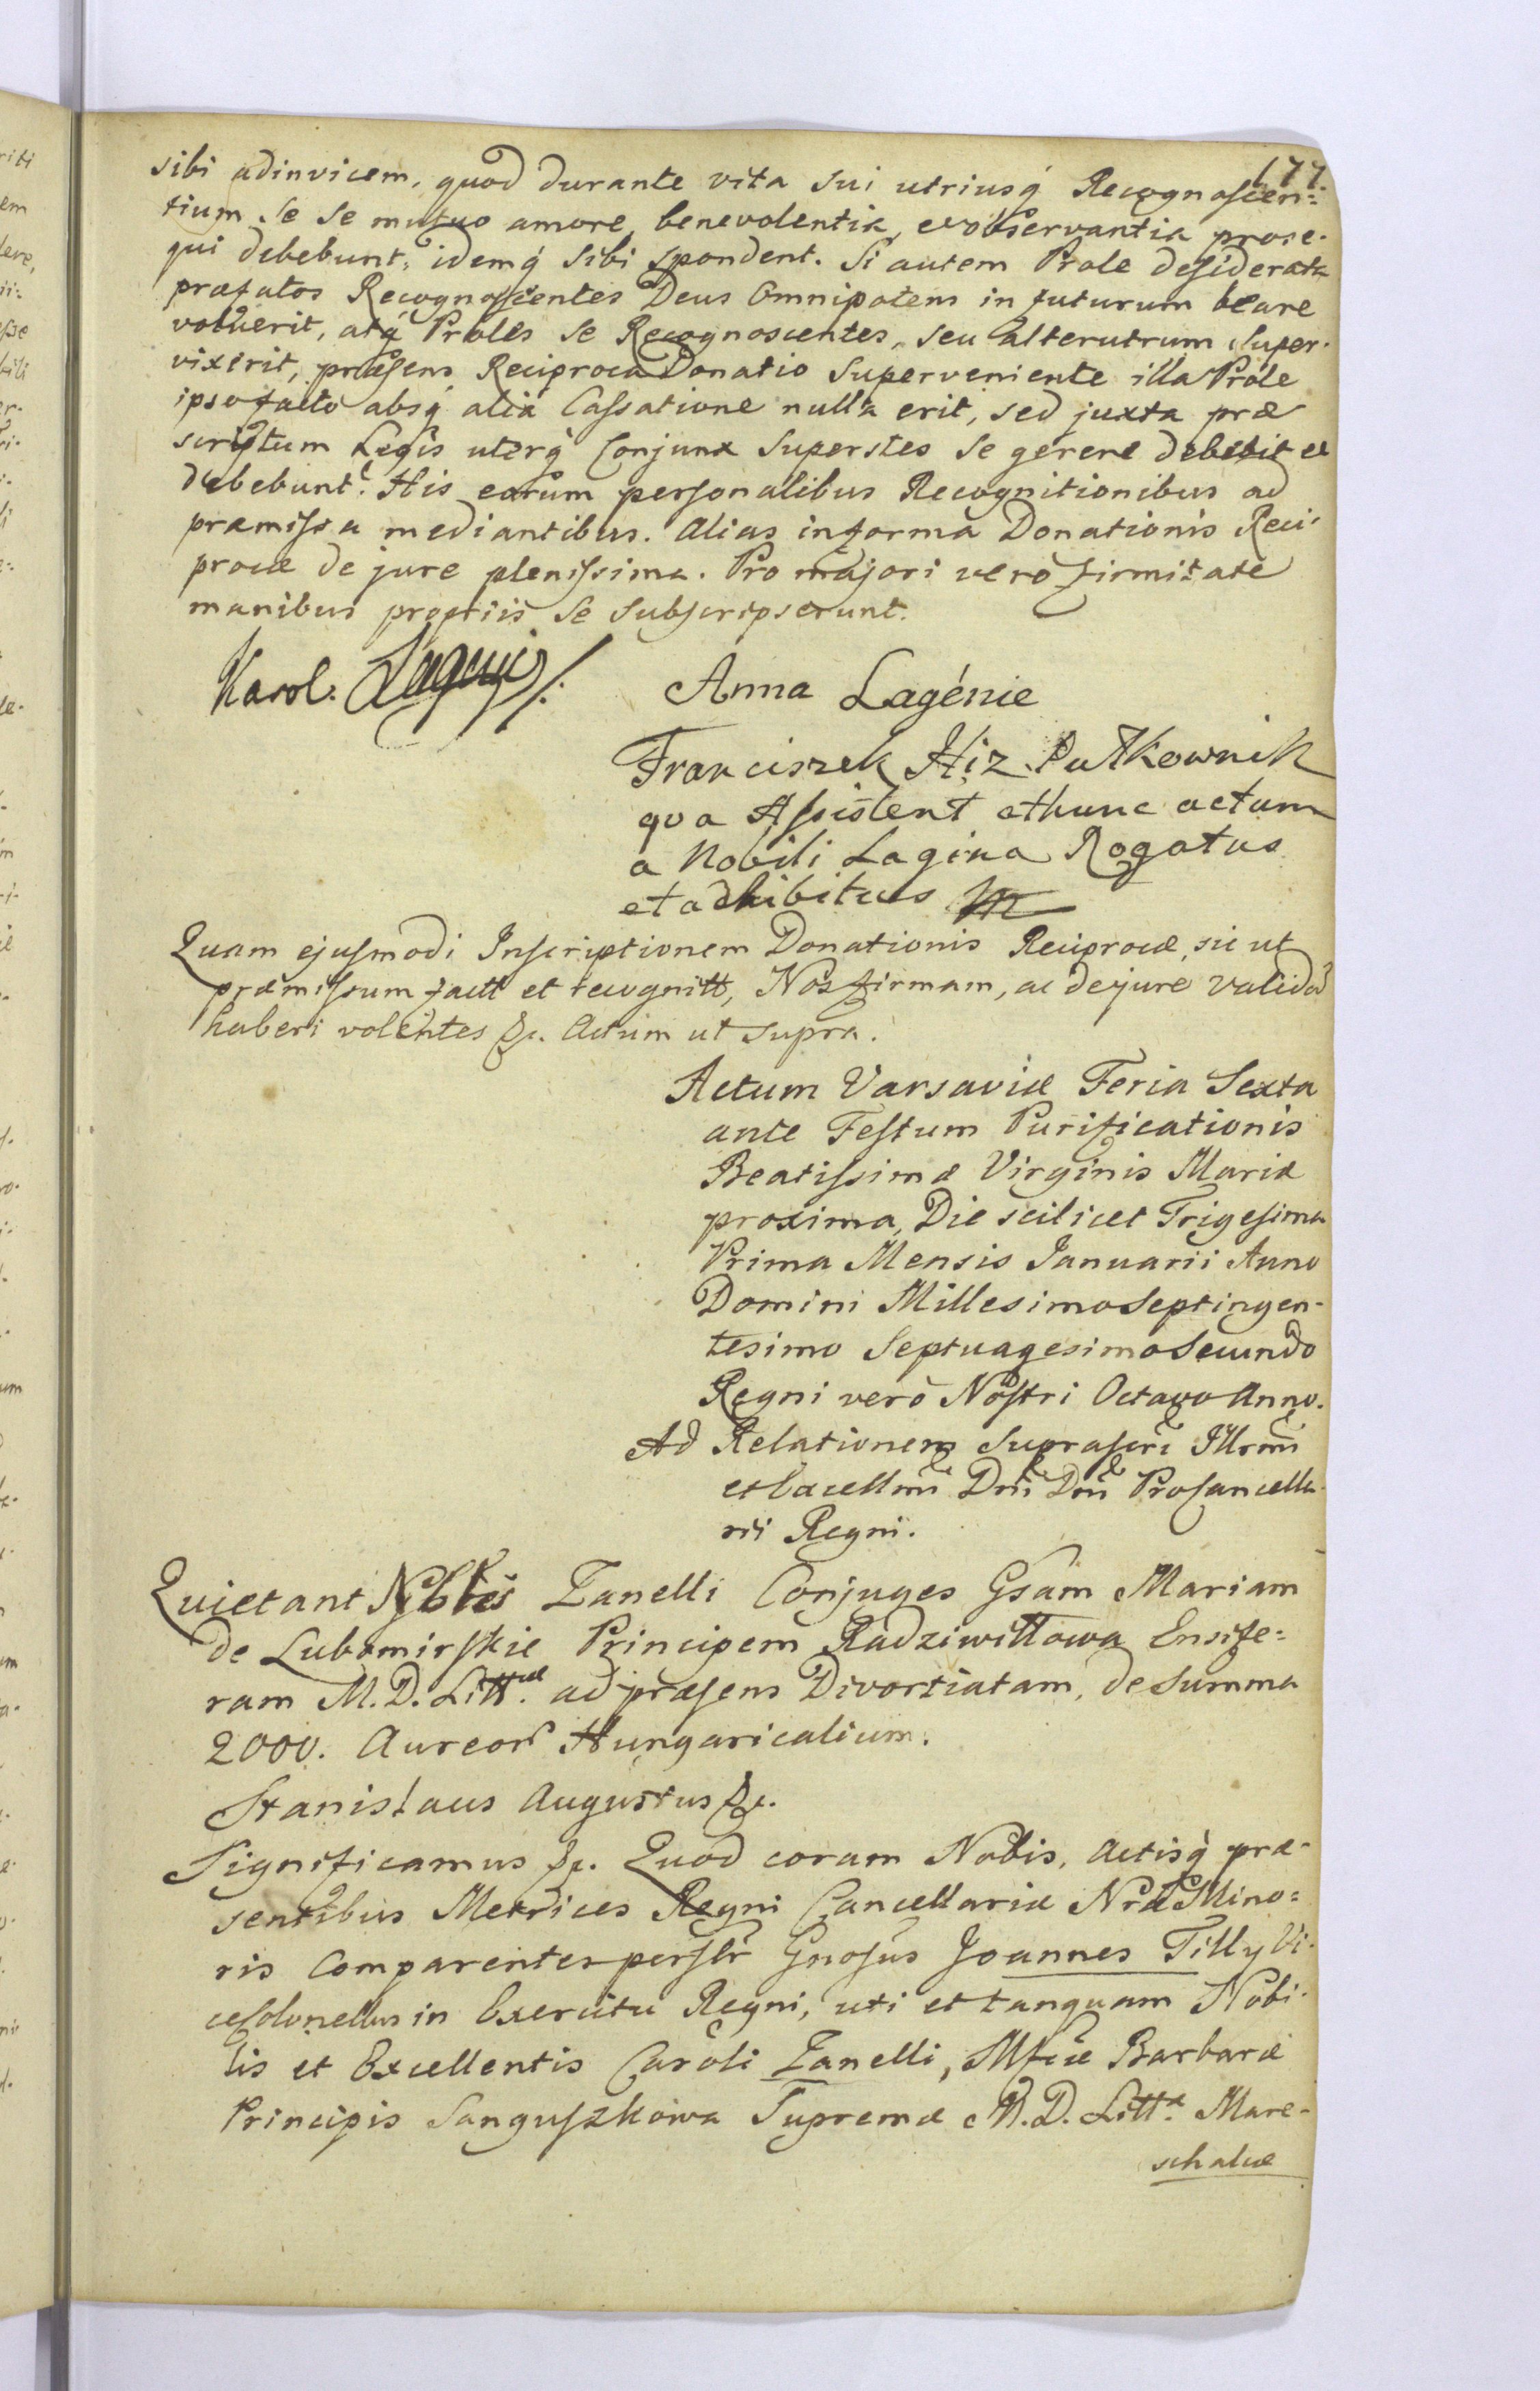 177
sibi adinvicem, quod durante vita sui utriusq́ Recognoscen=
tium se se mutuo amore, benevolentia, et observantia prose-
qui debebunt, idemq́ sibi spondent. Si autem Prole desiderata
præfatos Recognoscentes Deus Omnipotens in futurum beare
voluerit, atq́ Proles se Recognoscentes, seu alterutrum super-
vixerit, præsens Reciproca Donatio superveniente illa Prole
ipso facto absq́ alia Cassatione nulla erit, sed juxta præ
scriptum Legis uterq́ Conjunx superstes se gerere debebit et
debebunt. His eorum personalibus Recognitionibus ad
præmissa mediantibus. Alias in forma Donationis Reci-
procæ de jure plenissima. Pro majori vero firmitate
manibus propriis se subscripserunt.
Karol.
Anna Lagénie
Franciszek Hiz Pułkownik
qua Assistent ethunc actum
a Nobili Lagina Rogatus
et adhibitus
Quam ejusmodi Inscriptionem Donationis Reciprocæ, sic ut
præmissum factt et recognitt, Nos firmam, ac de jure validã
haberi volentes &c. Actum ut supra.
Actum Varsaviæ Feria Sexta
ante Festum Purificationis
Beatissimæ Virginis Mariæ
proxima, Die scilicet Trigesima
Prima Mensis Januarii Anno
Domini Millesimo Septingen-
tesimo Septuagesimo Secundo
Regni vero Nostri Octavo Anno.
Ad Relationem suprascri Illrmi
et Excellmi Dni Dni Procancella-
rii Regni.
Quietant Nobles Zanelli Conjuges Gsam Mariam
de Lubomirskie Principem Radziwiłłowa Ensife=
ram M. D. Litt.æ ad præsens Divortiatam, de summa
2000. Aureor Hungaricalium.
Stanislaus Augustus &c.
Significamus &c. Quod coram Nobis, Actisq́ præ-
sentibus Metrices Regni Cancellariæ Nræ Mino=
ris Comparentes persltr Gnosus Joannes Tilly Vi-
cecolonellus in Exercitu Regni, uti et tanquam Nobi-
lis et Excellentis Caroli Zanelli, Mfcæ Barbaræ
Principis Sanguszkowa Supremæ M. D. Litt.æ Mare-
schalcæ